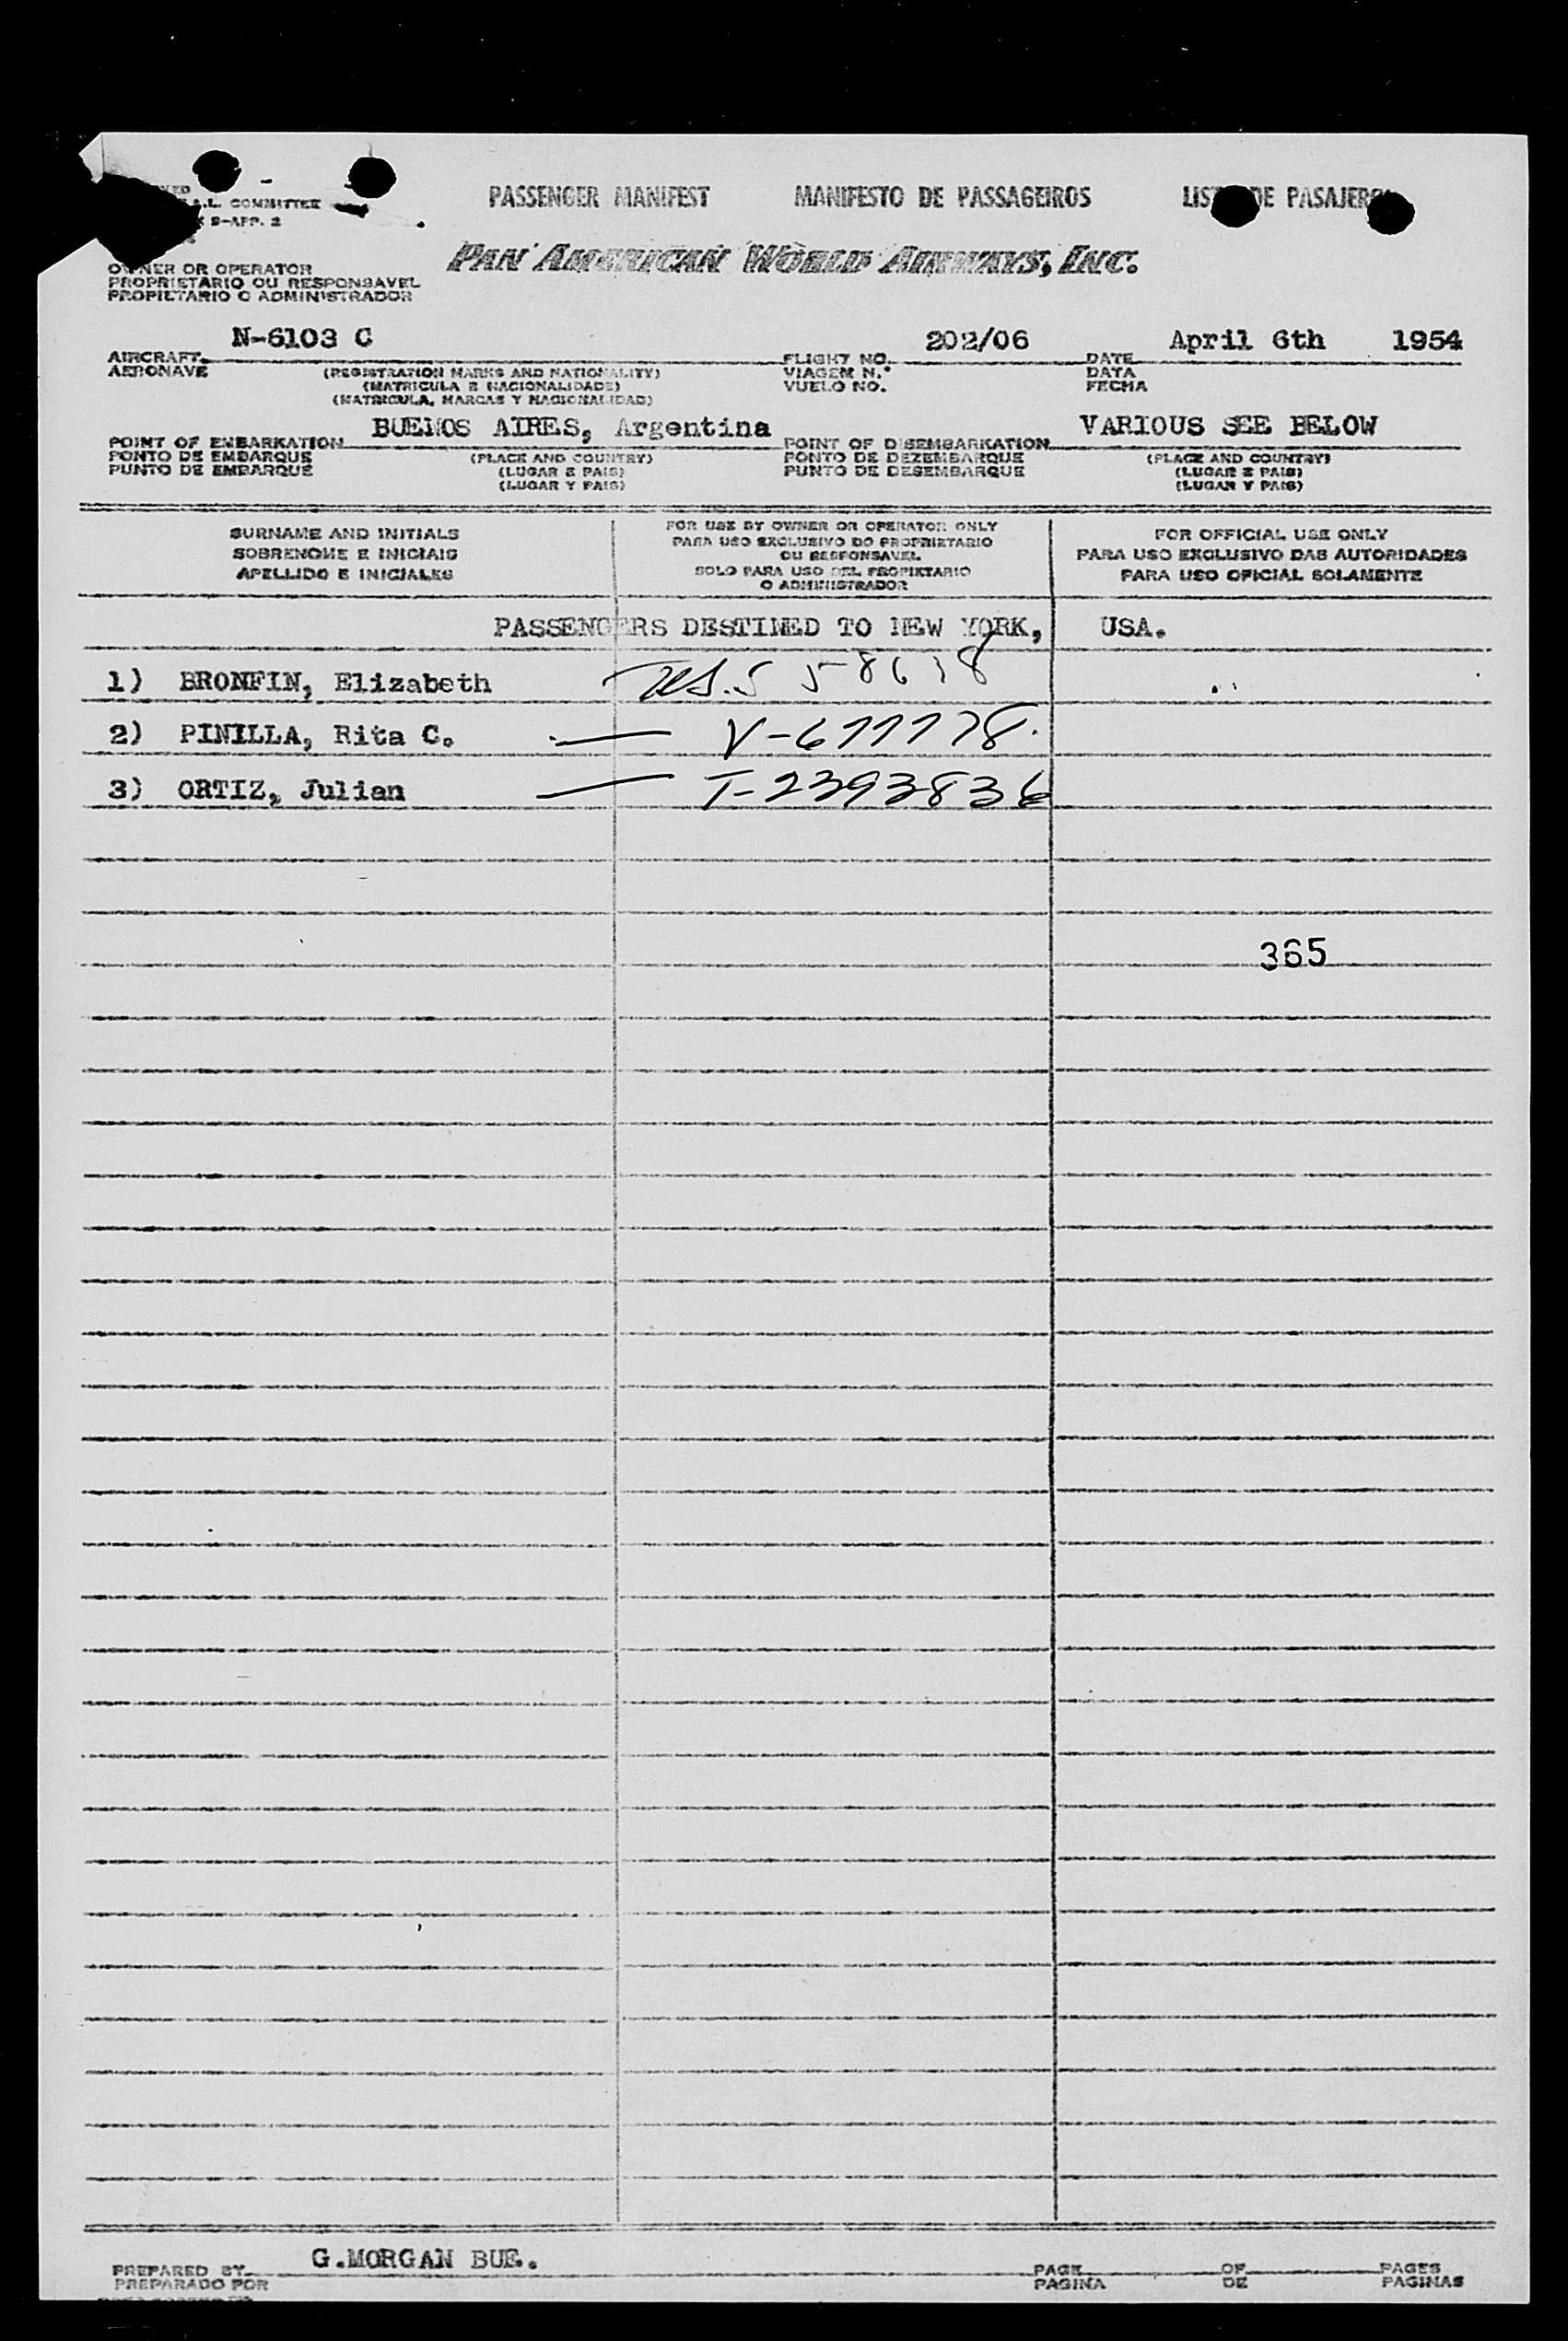 PASSENGER MANIFEST MANIFESTO DE PASSAGEIROS LIS DE PASAJERO
A.L. COMMITTEE
9-APP. 2
PAN AMERICAN WORLD AIRWAYS, INC.
OWNER OR OPERATOR
PROPRIETARIO OU RESPONSAVEL
PROPIETARIO O ADMINISTRADOR
N-6103 C 202/06 April 6th 1954
AIRCRAFT FLIGHT NO. DATE
AERONAVE (REGISTRATION MARKS AND NATIONALITY) VIAGEM N.º DATA
(MATRICULA E NACIONALIDADE) VUELO NO. FECHA
(MATRICULA, MARCAS Y NACIONALIDAD)
BUENOS AIRES, Argentina VARIOUS SEE BELOW
POINT OF EMBARKATION POINT OF DISEMBARKATION
PONTO DE EMBARQUE (PLACE AND COUNTRY) PONTO DE DEZEMBARQUE (PLACE AND COUNTRY)
PUNTO DE EMBARQUE (LUGAR E PAIS) PUNTO DE DESEMBARQUE (LUGAR E PAIS)
(LUGAR Y PAIS) (LUGAR Y PAIS)
SURNAME AND INITIALS
SOBRENOME E INICIAIS
APELLIDO E INICIALES
FOR USE BY OWNER OR OPERATOR ONLY
PARA USO EXCLUSIVO DO PROPRIETARIO
OU RESPONSAVEL
SOLO PARA USO DEL PROPIETARIO
O ADMINISTRADOR
FOR OFFICIAL USE ONLY
PARA USO EXCLUSIVO DAS AUTORIDADES
PARA USO OFICIAL SOLAMENTE
PASSENGERS DESTINED TO NEW YORK, USA.
1) BRONFIN, Elizabeth
2) PINILLA, Rita C. — V-677778
3) ORTIZ, Julian — T-2393836
365
G.MORGAN BUE.
PREPARED BY PAGE OF PAGES
PREPARADO POR PAGINA DE PAGINAS